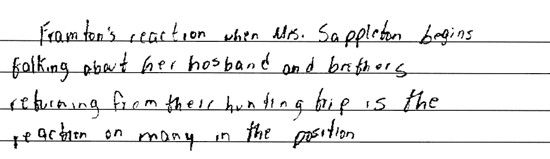 Framton's reaction when Mrs. Sappleton begins
talking about her hosband and brothers
returning from their hunting trip is the
reaction on many in the position